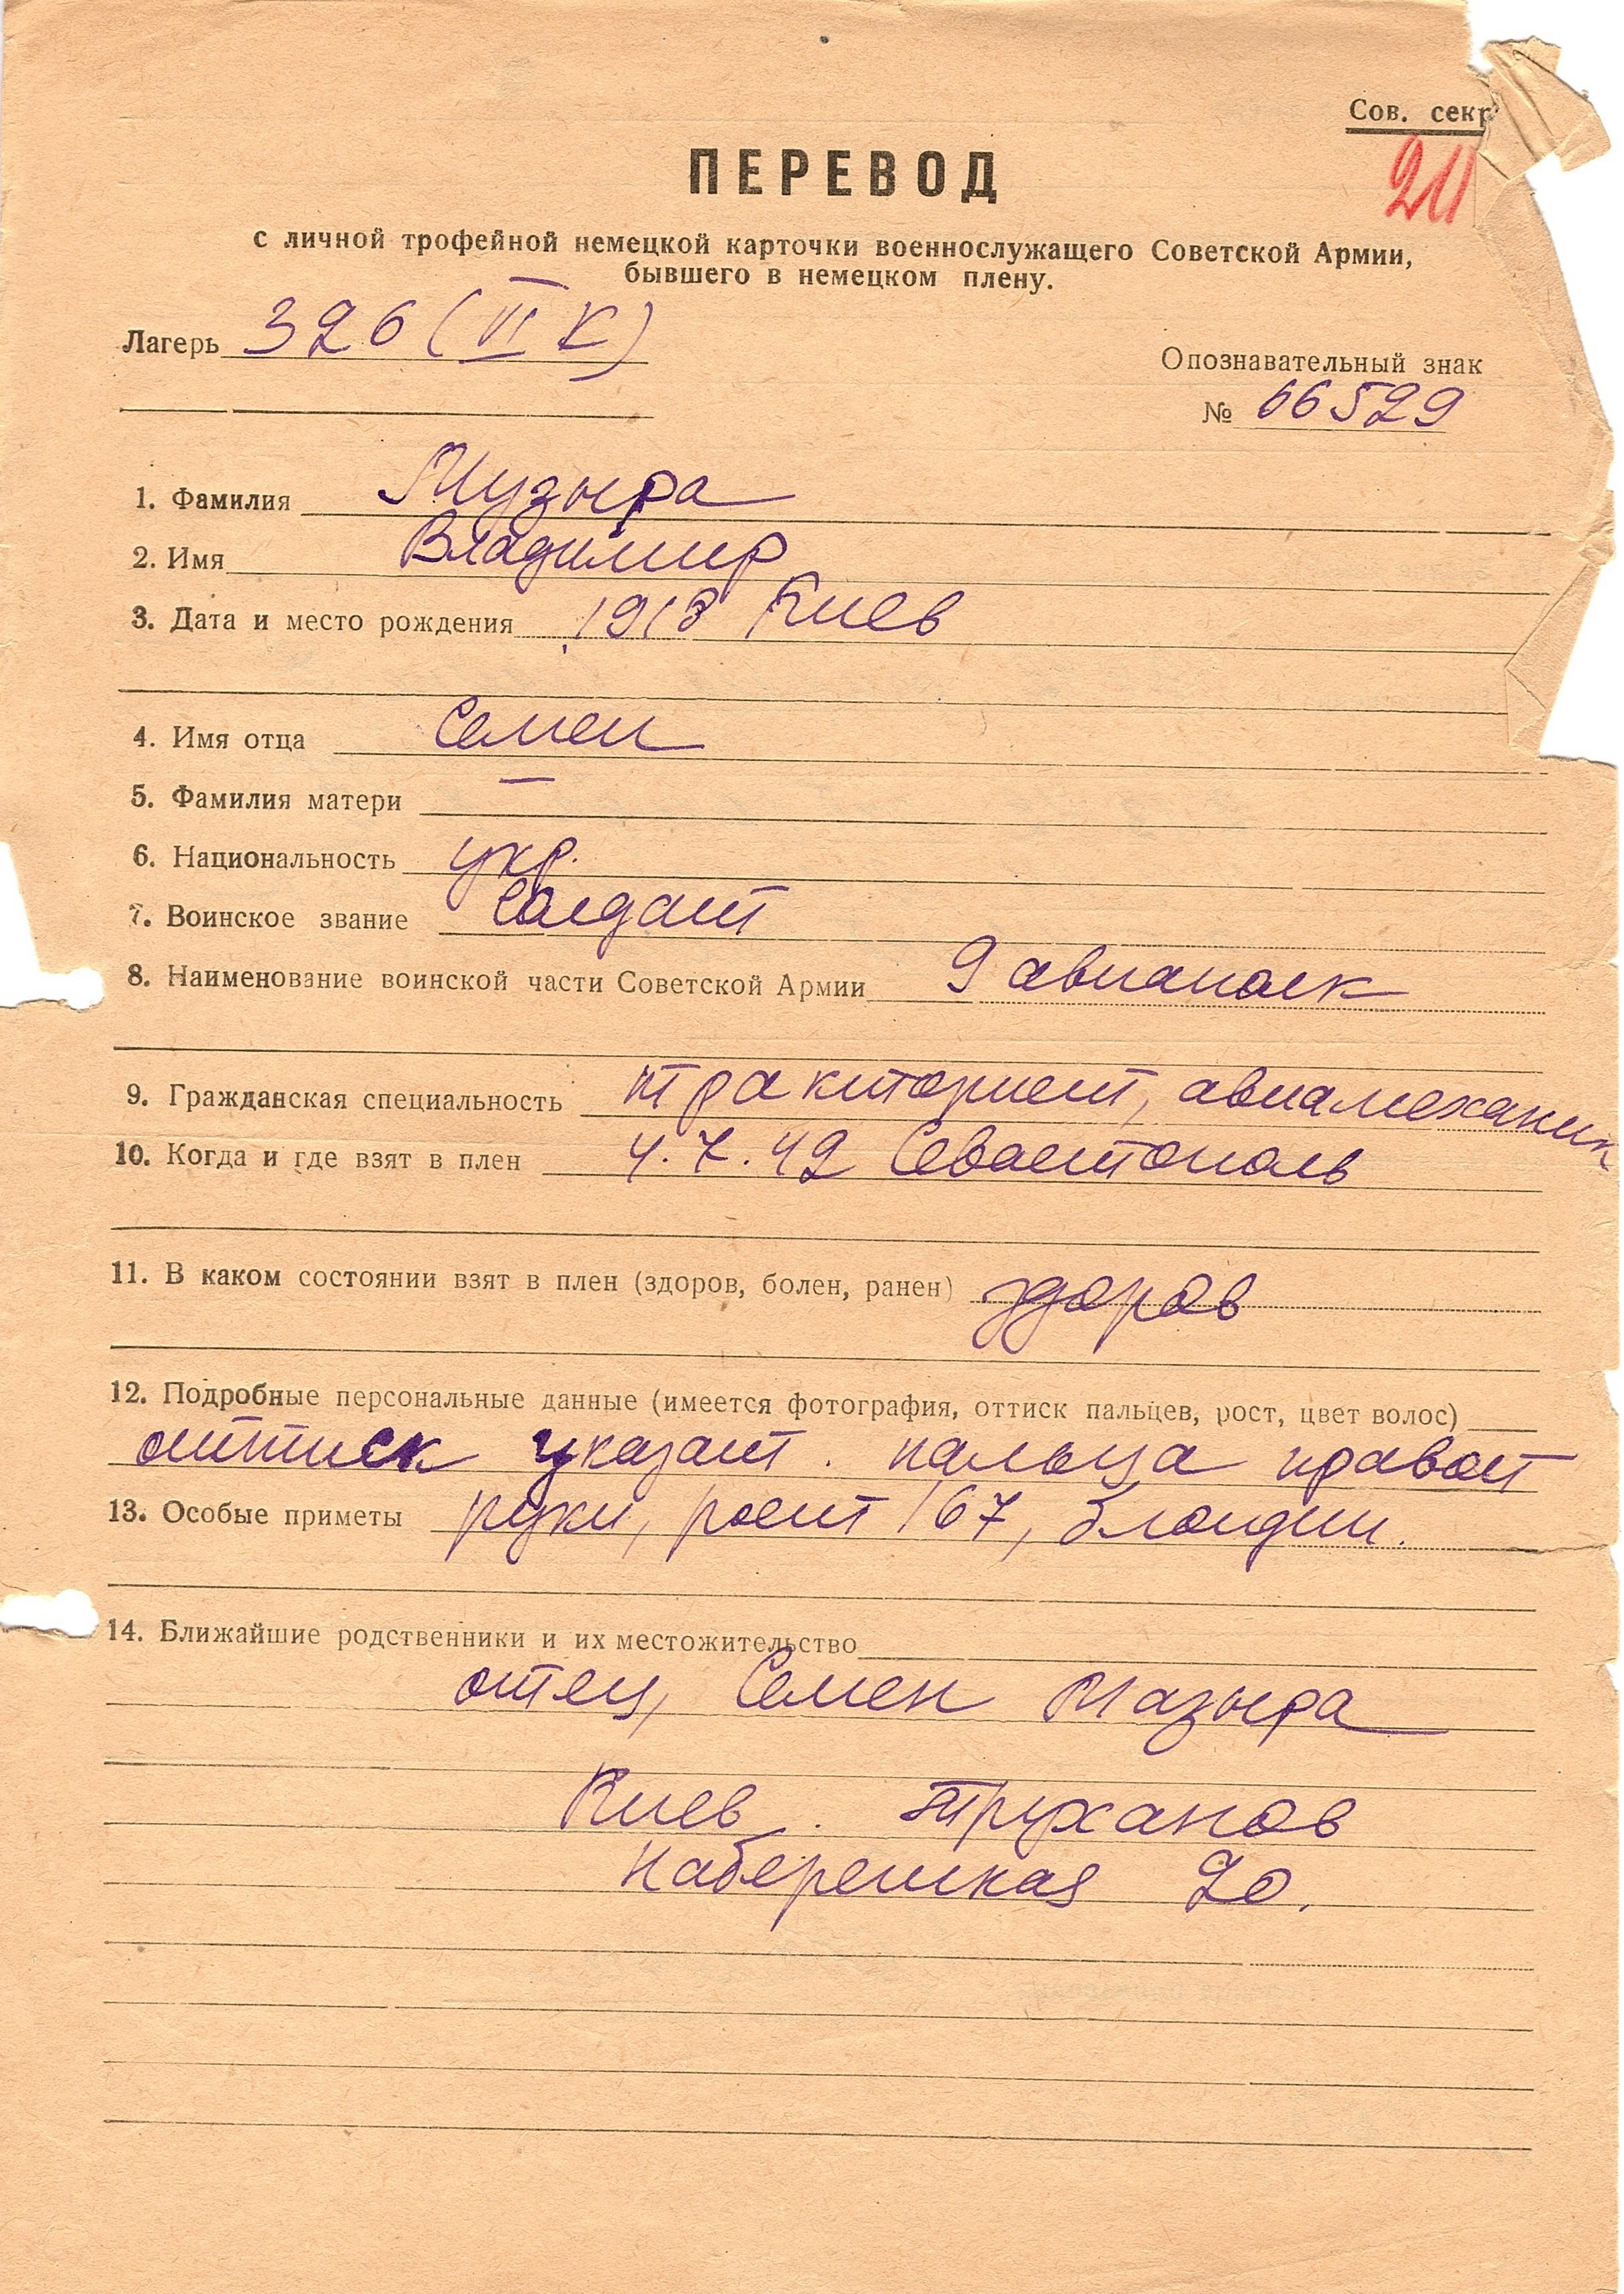 Сов. секр
ПЕРЕВОД
21
с личной трофейной немецкой карточки военнослужащего Советской Армии,
бывшего в немецком плену.
Лагерь 326 (VI К)
Опознавательный знак
№ 66529
1. Фамилия Музыра
2. Имя Владимир
3. Дата и место рождения 1918 Киев
4. Имя отца Семен
5. Фамилия матери —
6. Национальность укр.
7. Воинское звание Солдат
8. Наименование воинской части Советской Армии 9 авиаполк
9. Гражданская специальность тракторист, авиамеханик
10. Когда и где взят в плен 4.7.42 Севастополь
11. В каком состоянии взят в плен (здоров, болен, ранен) здоров
12. Подробные персональные данные (имеется фотография, оттиск пальцев, рост, цвет волос)
оттиск указат. пальца правой
13. Особые приметы руки, рост 167, блондин.
14. Ближайшие родственники и их местожительство
отец, Семен Мазыра
Киев. Труханов
Набережная 20.